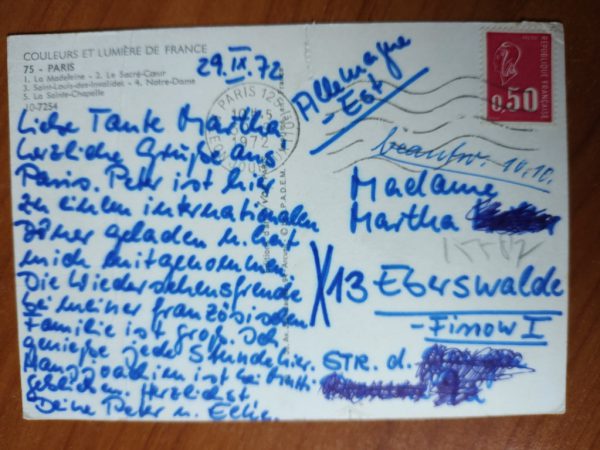 COULEURS ET LUMIÈRE DE FRANCE
75 - PARIS
1. La Madeleine - 2. Le Sacré-Cœur
3. Saint-Louis-des-Invalides - 4. Notre-Dame
5. La Sainte-Chapelle
10-7254
29.IX.72
Liebe Tante Martha
herzliche Grüße aus
Paris. Peter ist hier
zu einem internationalen
geladen u. hat
mich mitgenommen
Die Wiedersehensfreude
bei meiner französischen
Familie ist groß. Ich
genieße jede Stunde hier.
Hans Joachim ist bei
geblieben. Herzlichst
Deine Peter u.
PARIS
1972
Allemagne
- Est
RÉPUBLIQUE FRANÇAISE
0,50
beantw. 10.10.
Madame
Martha
X 13 Eberswalde
- Finow I
STR. d.